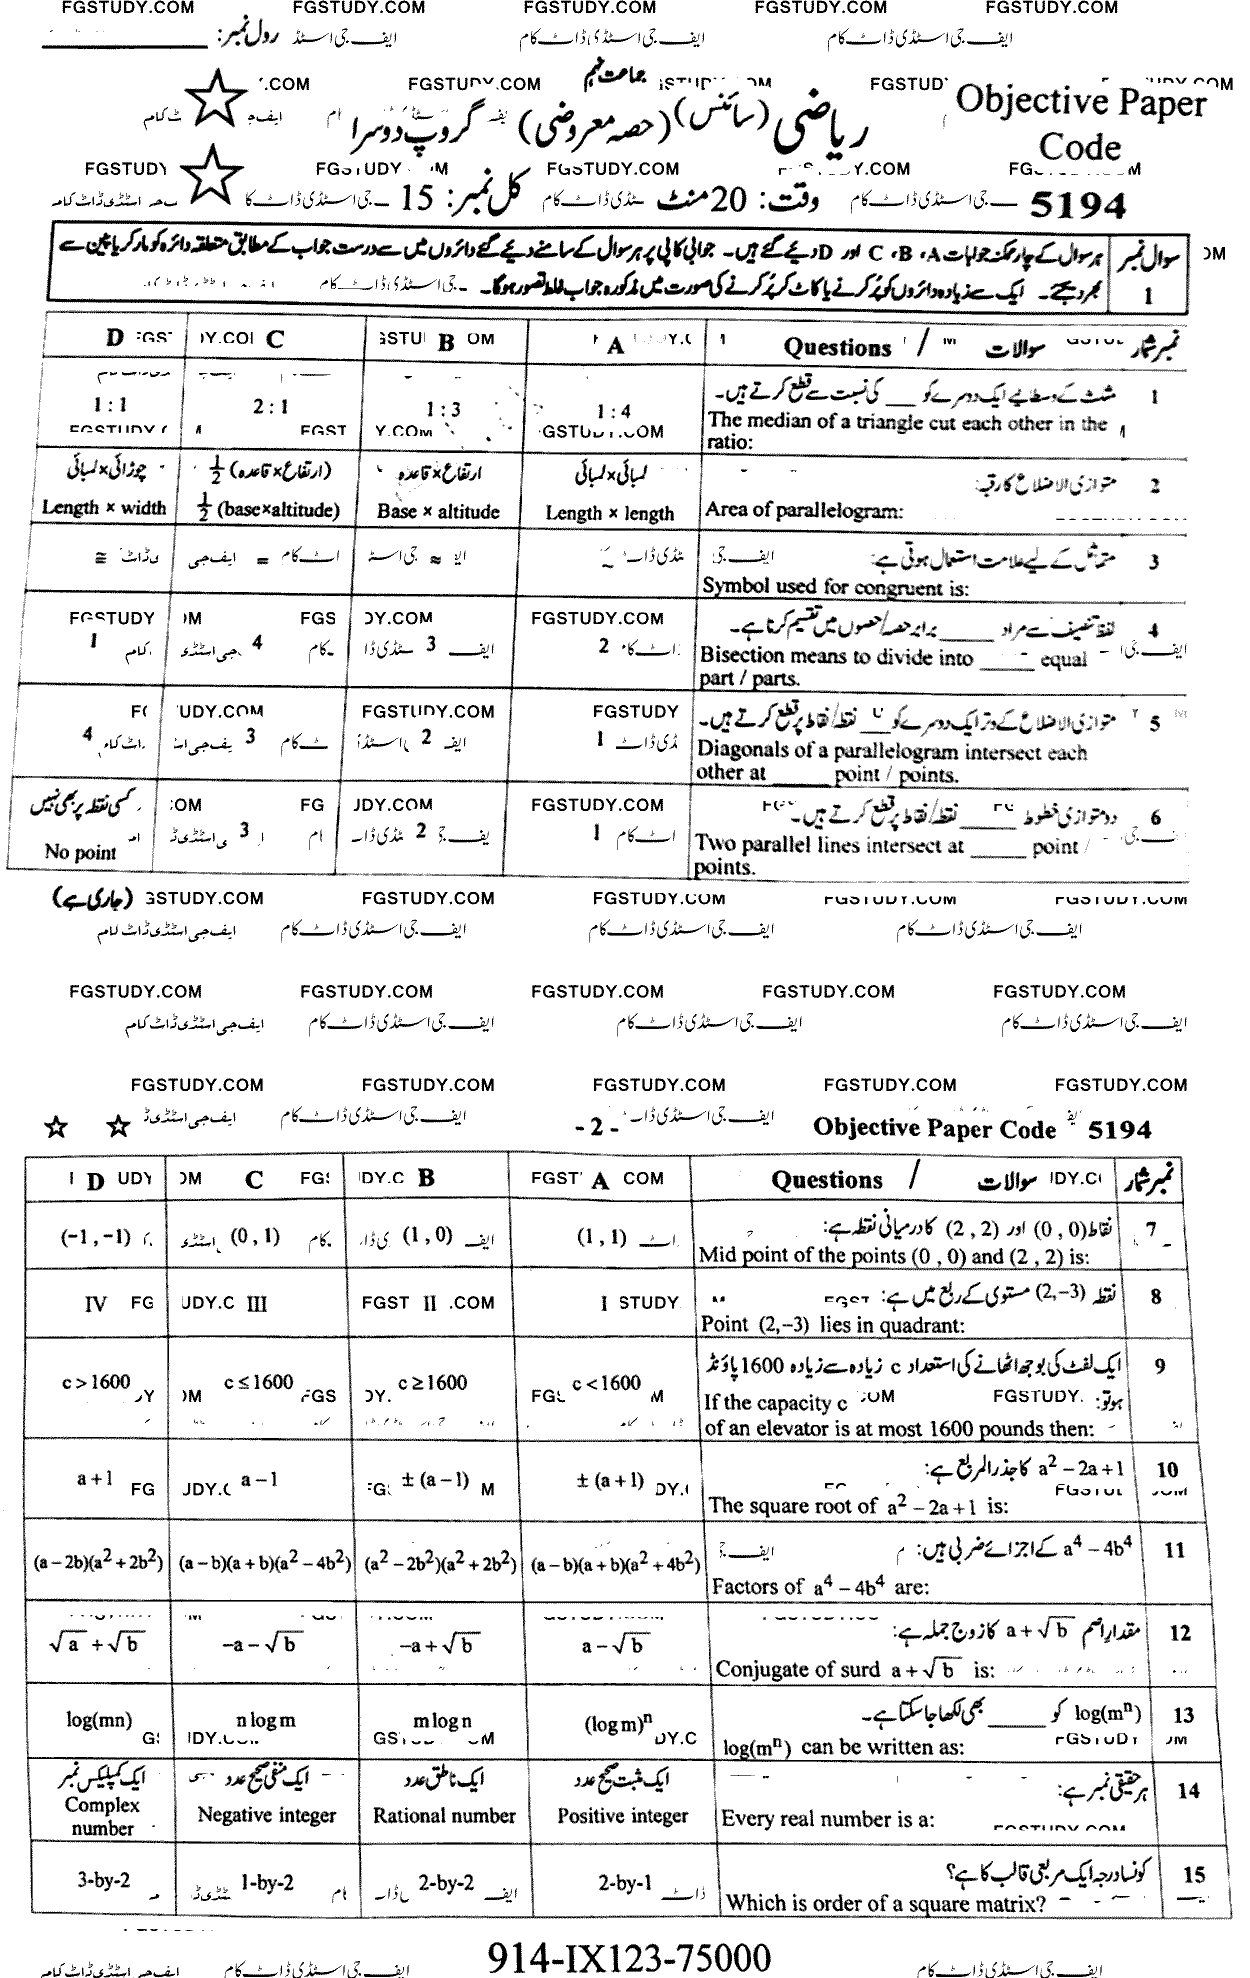 رول نمبر:
جماعت نہم
ریاضی (سائنس) (حصہ معروضی) گروپ دوسرا
Objective Paper Code
5194
وقت: 20 منٹ کل نمبر: 15
سوال نمبر 1
ہر سوال کے چار ممکنہ جوابات A، B، C اور D دیے گئے ہیں۔ جوابی کاپی پر ہر سوال کے سامنے دیے گئے دائروں میں سے درست جواب کے مطابق متعلقہ دائرہ کو مارکر یا پین سے
بھر دیجیے۔ ایک سے زیادہ دائروں کو پُر کرنے یا کاٹ کر پُر کرنے کی صورت میں مذکورہ جواب غلط تصور ہوگا۔
نمبر شمار سوالات / Questions A B C D
1 مثلث کے وسطانیے ایک دوسرے کو ___ کی نسبت سے قطع کرتے ہیں۔
The median of a triangle cut each other in the
ratio:
1 : 4 1 : 3 2 : 1 1 : 1
2 متوازی الاضلاع کا رقبہ:
Area of parallelogram:
لمبائی×لمبائی ارتفاع×قاعدہ 1/2 (ارتفاع×قاعدہ) چوڑائی×لمبائی
Length × length Base × altitude 1/2 (base×altitude) Length × width
3 متماثل کے لیے علامت استعمال ہوتی ہے:
Symbol used for congruent is:
~ ≈ = ≅
4 لفظ تنصیف سے مراد ____ برابر حصہ/حصوں میں تقسیم کرنا ہے۔
Bisection means to divide into _____ equal
part / parts.
2 3 4 1
5 متوازی الاضلاع کے وتر ایک دوسرے کو ___ نقطہ/نقاط پر قطع کرتے ہیں۔
Diagonals of a parallelogram intersect each
other at _____ point / points.
1 2 3 4
6 دو متوازی خطوط ____ نقطہ/نقاط پر قطع کرتے ہیں۔
Two parallel lines intersect at _____ point /
points.
1 2 3 کسی نقطہ پر بھی نہیں
No point
(جاری ہے)
FGSTUDY.COM FGSTUDY.COM FGSTUDY.COM FGSTUDY.COM FGSTUDY.COM
ایف جی اسٹڈی ڈاٹ کام ایف جی اسٹڈی ڈاٹ کام ایف جی اسٹڈی ڈاٹ کام ایف جی اسٹڈی ڈاٹ کام
FGSTUDY.COM FGSTUDY.COM FGSTUDY.COM FGSTUDY.COM FGSTUDY.COM
- 2 - Objective Paper Code 5194
نمبر شمار سوالات / Questions A B C D
7 نقاط (0 , 0) اور (2 , 2) کا درمیانی نقطہ ہے:
Mid point of the points (0 , 0) and (2 , 2) is:
(1 , 1) (1 , 0) (0 , 1) (-1 , -1)
8 نقطہ (2,-3) مستوی کے ربع میں ہے:
Point (2,-3) lies in quadrant:
I II III IV
9 ایک لفٹ کی بوجھ اٹھانے کی استعداد c زیادہ سے زیادہ 1600 پاؤنڈ
ہو تو:
If the capacity c
of an elevator is at most 1600 pounds then:
c < 1600 c ≥ 1600 c ≤ 1600 c > 1600
10 a² - 2a + 1 کا جذر المربع ہے:
The square root of a² - 2a + 1 is:
± (a + 1) ± (a - 1) a - 1 a + 1
11 a⁴ - 4b⁴ کے اجزائے ضربی ہیں:
Factors of a⁴ - 4b⁴ are:
(a - b)(a + b)(a² + 4b²) (a² - 2b²)(a² + 2b²) (a - b)(a + b)(a² - 4b²) (a - 2b)(a² + 2b²)
12 مقدار اصم a + √b کا زوج جملہ ہے:
Conjugate of surd a + √b is:
a - √b -a + √b -a - √b √a + √b
13 log(mⁿ) کو _____ بھی لکھا جا سکتا ہے۔
log(mⁿ) can be written as:
(log m)ⁿ m log n n log m log(mn)
14 ہر حقیقی نمبر ہے:
Every real number is a:
ایک مثبت صحیح عدد ایک ناطق عدد ایک منفی صحیح عدد ایک کمپلیکس نمبر
Positive integer Rational number Negative integer Complex number
15 کونسا درجہ ایک مربعی قالب کا ہے؟
Which is order of a square matrix?
2-by-1 2-by-2 1-by-2 3-by-2
914-IX123-75000